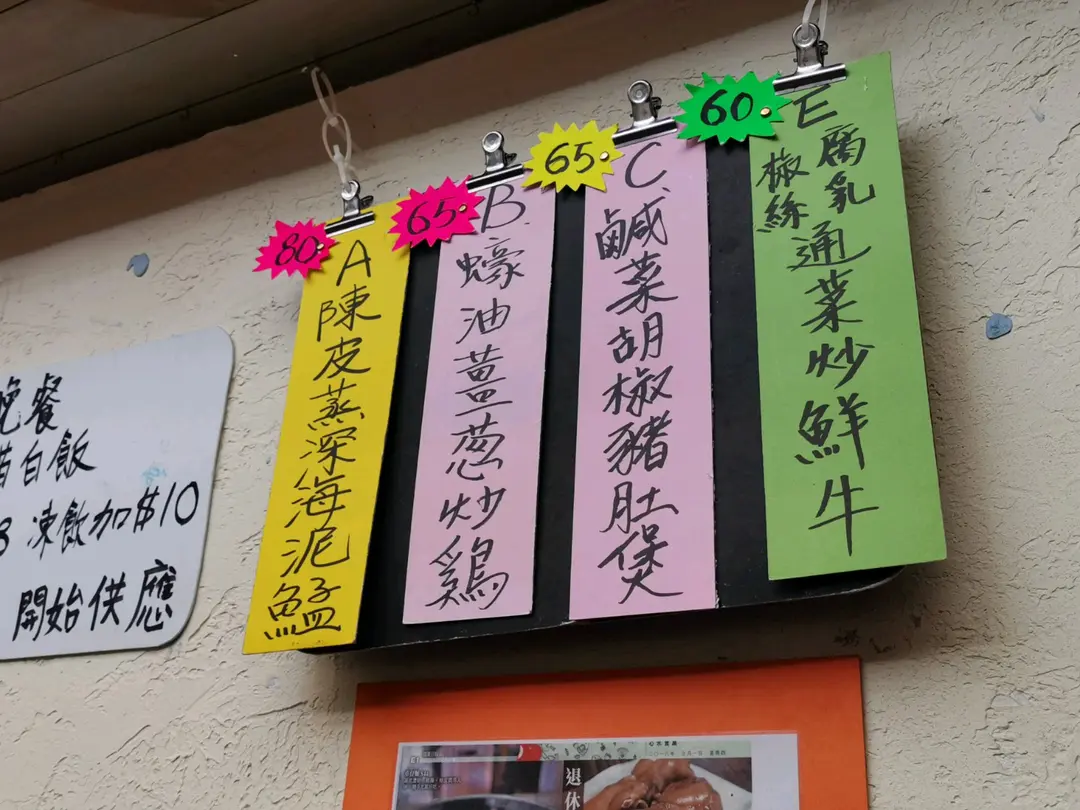 80
A
陳皮蒸深海泥鯭
65
B.
蠔油薑葱炒鷄
65
C.
鹹菜胡椒豬肚煲
60
E
椒絲
腐乳
通菜炒鮮牛
晚餐
白飯
凍飲加$10
開始供應
退休